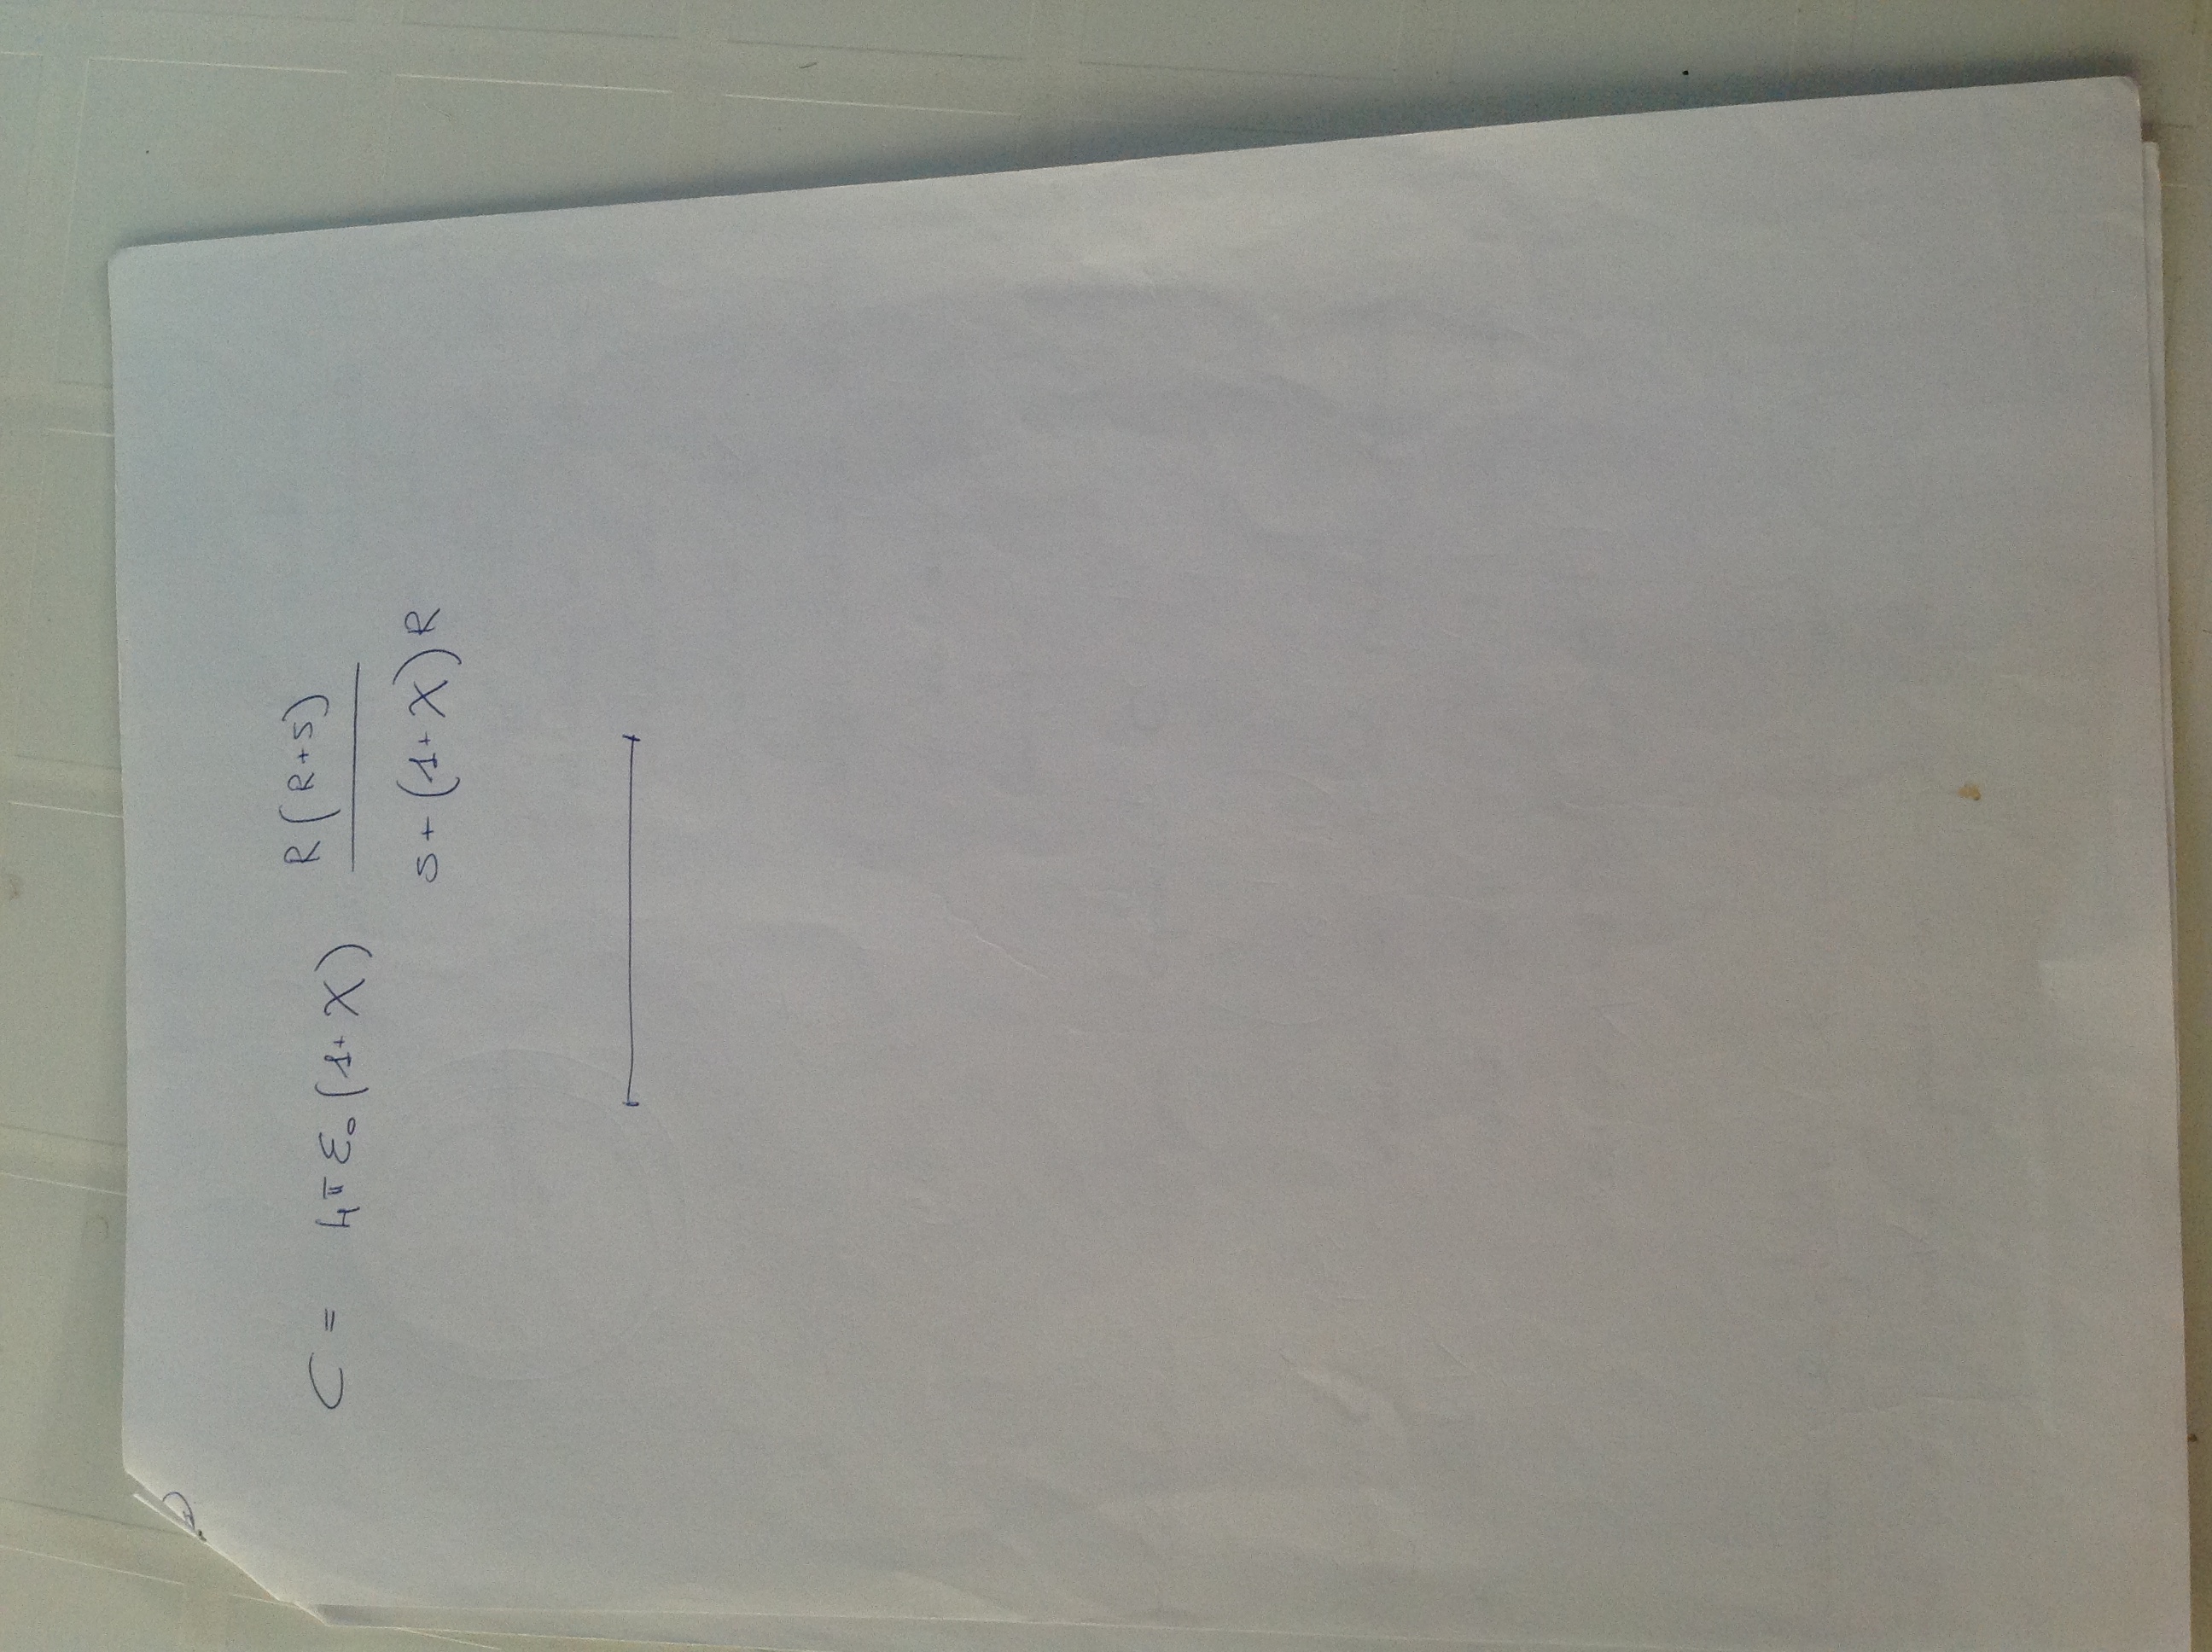 C = 4π ε₀ (1+ χ) R(R+s) / s+(1+χ)R